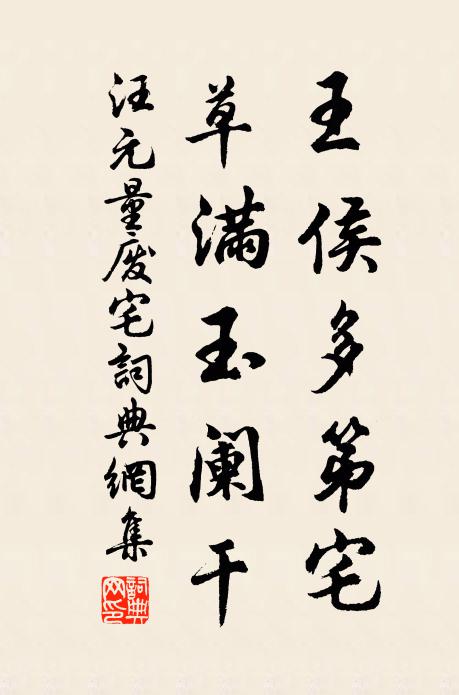 王侯多第宅
草满玉阑干
汪元量废宅詞典網集
詞典网印